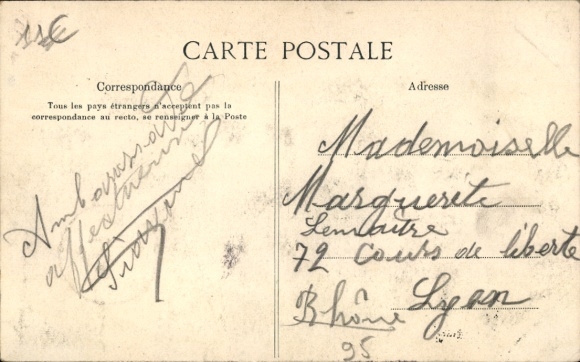 11€
CARTE POSTALE
Correspondance
Tous les pays étrangers n'acceptent pas la
correspondance au recto, se renseigner à la Poste
Adresse
Mademoiselle
Marguerite
Lemaître
72 Cours de liberte
Rhône Lyon
95